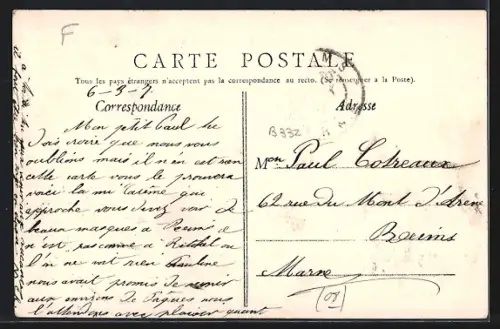 F
CARTE POSTALE
Tous les pays étrangers n'acceptent pas la correspondance au recto. (Se renseigner à la Poste).
6-3-7
Correspondance
Mon petit Paul tu
dois croire que nous vous
oublions mais il n en est rien
cette carte vous le prouvera
voici la mi Carême qui
approche vous devez voir de
beaux masques a Reims ce
n est pas comme a Rethel ou
l'on ne voit rien Pauline
nous avait promis de venir
aux environs de Pâques nous
l'attendons avec plaisir quant
Adresse
B332
Mon Paul Cotreaux
62 rue du Mont d'Arène
Reims
Marne
(08)